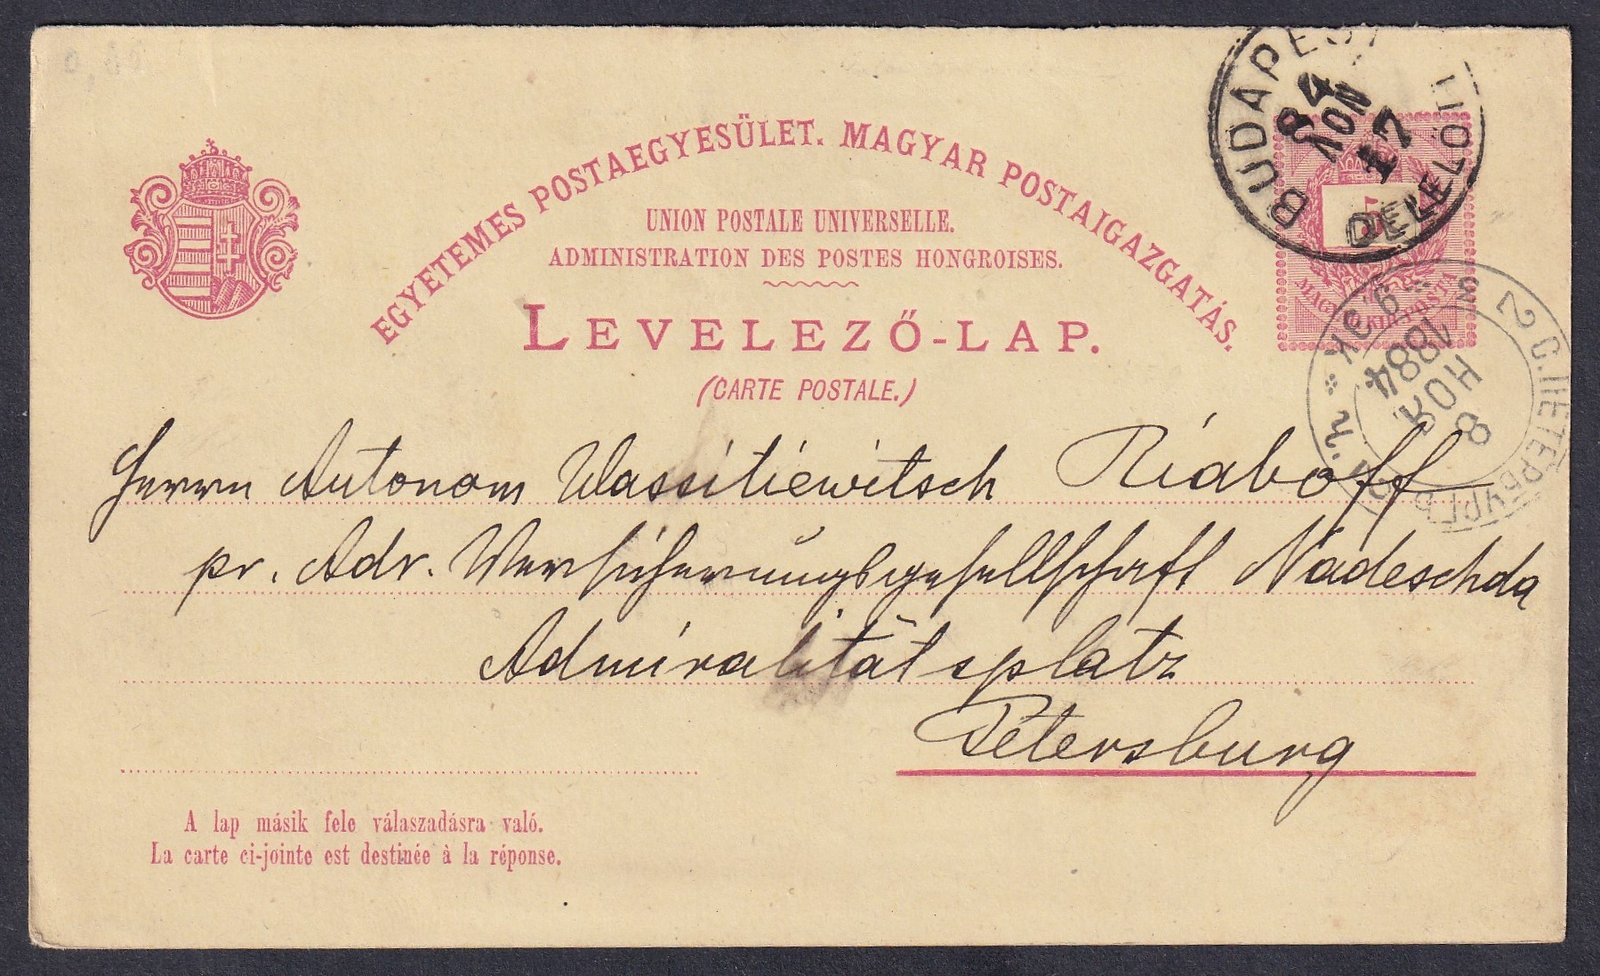 EGYETEMES POSTAEGYESÜLET. MAGYAR POSTAIGAZGATÁS.
UNION POSTALE UNIVERSELLE.
ADMINISTRATION DES POSTES HONGROISES.
LEVELEZŐ-LAP.
(CARTE POSTALE.)
BUDAPEST
84
NOV
17
DÉLELŐTT
MAGYAR KIR. POSTA
С.ПЕТЕРБУРГЪ
8
НОЯ
1884
Herrn Autonom Wassitiewitsch Riaboff
pr. Adr. Versicherungsgesellschaft Nadeschda
Admiralitätsplatz
Petersburg
A lap másik fele válaszadásra való.
La carte ci-jointe est destinée à la réponse.